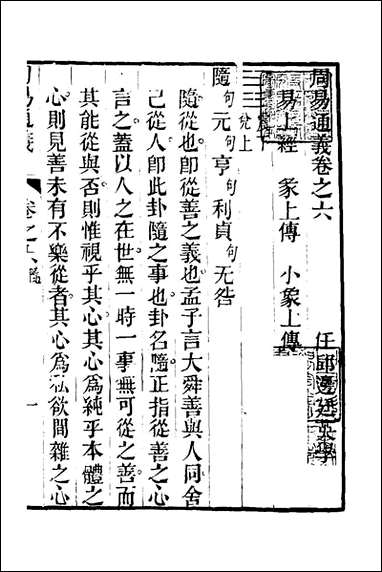 周易通義卷之六
任邱邊廷英學
易上經　彖上傳　小象上傳
震下
兌上
隨句元句亨句利貞句无咎
隨從也即從善之義也孟子言大舜善與人同舍
己從人即此卦隨之事也卦名隨正指從善之心
言之蓋以人之在世無一時一事無可從之善而
其能從與否則惟視乎其心其心為純乎本體之
心則見善未有不樂從者其心為私欲間雜之心
周易通義
卷之六
隨
一